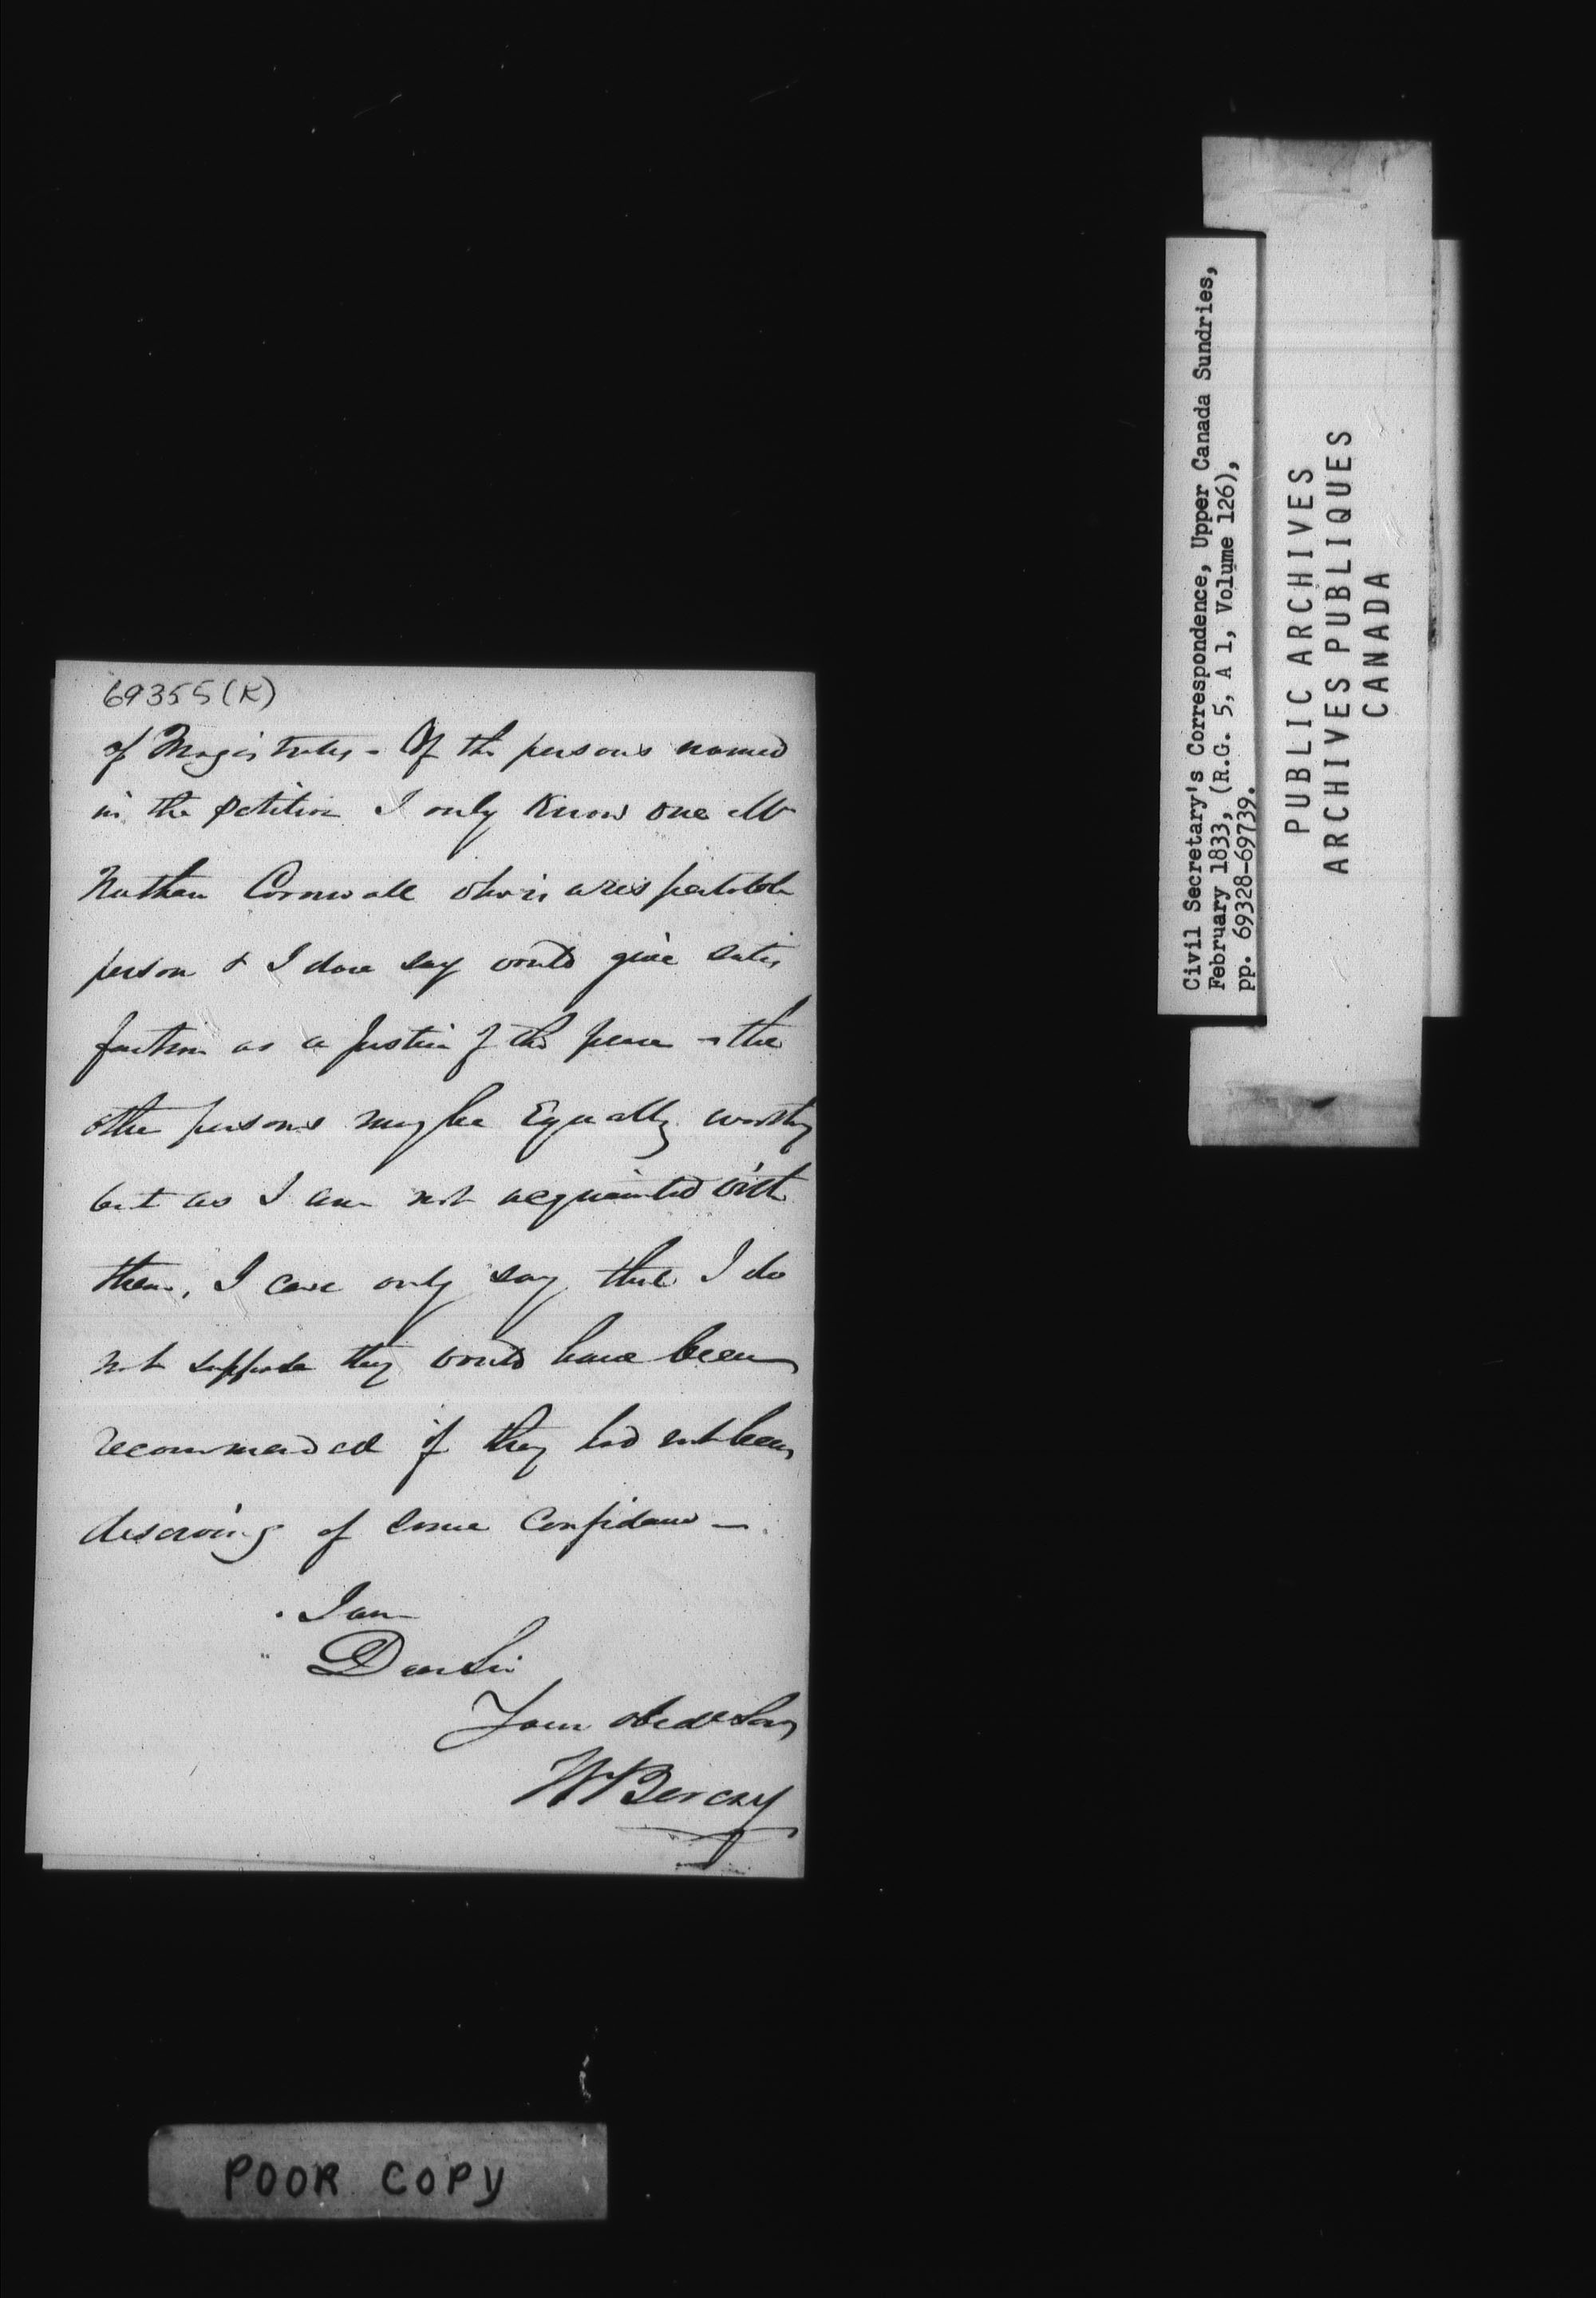 69355(K)
of Magistrates - Of the persons named
in the petition I only know one Mr
Nathan Cornwall who is a respectable
person & I dare say would give satis
faction as a Justice of the peace - the
other persons may be Equally worthy
but as I am not acquainted with
them, I can only say that I do
not suppose they would have been
recommended if they had not been
deserving of some Confidence —
I am
Dear Sir
Your obedt Serv
W Berczy
Civil Secretary's Correspondence, Upper Canada Sundries,
February 1833, (R.G. 5, A 1, Volume 126),
pp. 69328-69739.
PUBLIC ARCHIVES
ARCHIVES PUBLIQUES
CANADA
POOR COPY